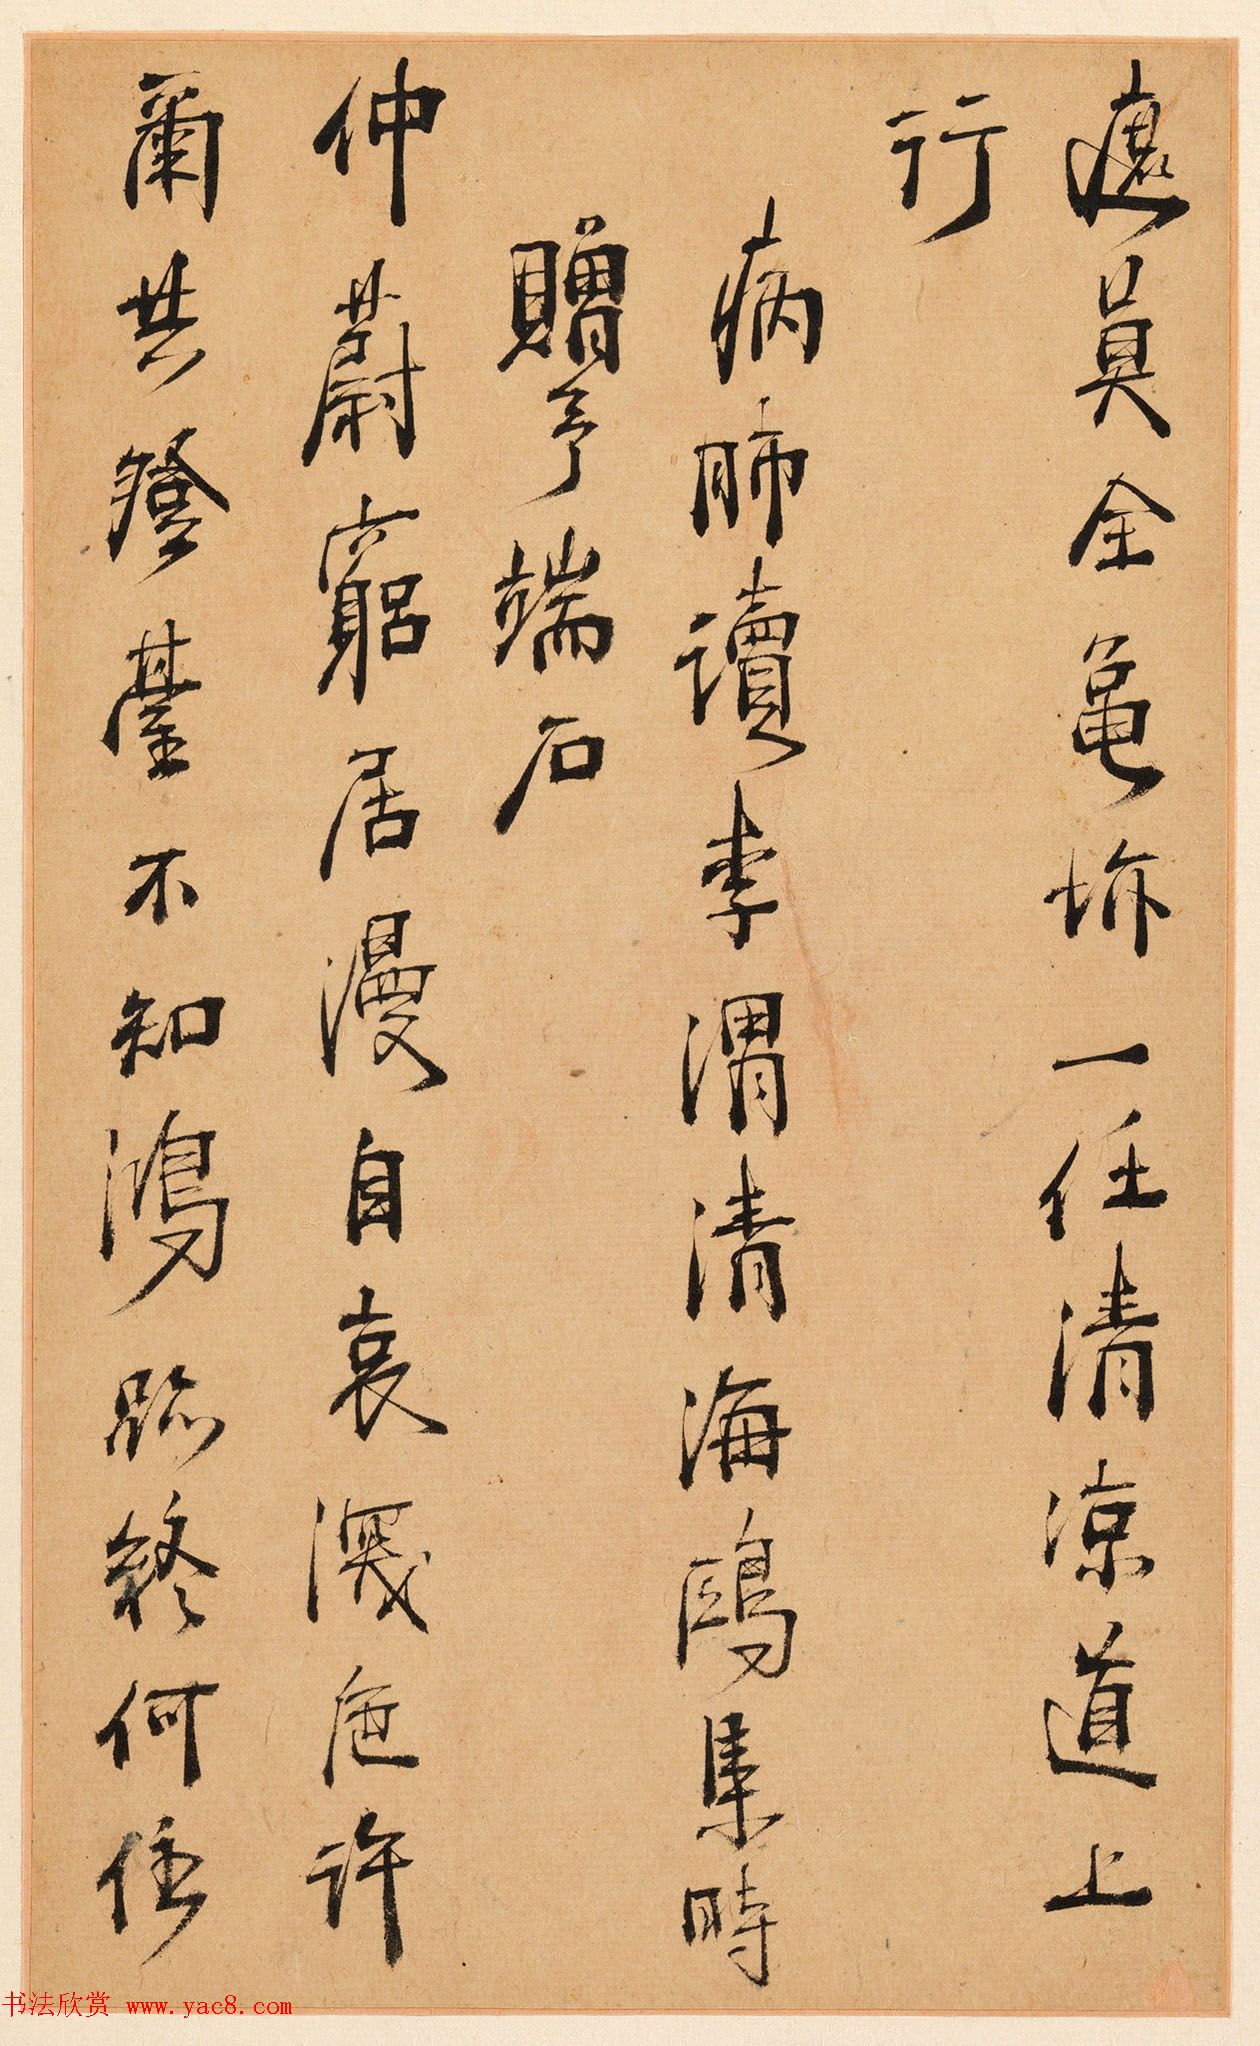 全龜坼一任清涼道上
行
病肺讀李渭清海鷗集時
贈予端石
仲蔚窮居漫自哀卮許
爾共登臺不知鴻跡終何住
书法欣赏 www.yac8.com